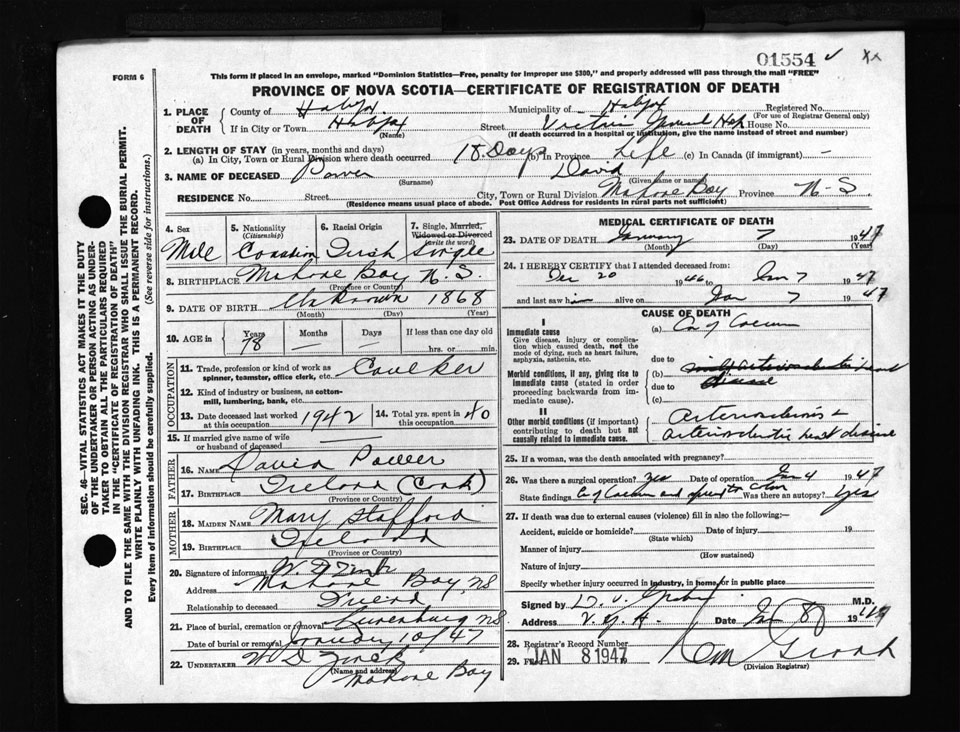 01554
FORM 6
This form if placed in an envelope, marked "Dominion Statistics—Free, penalty for improper use $300," and properly addressed will pass through the mail "FREE"
PROVINCE OF NOVA SCOTIA—CERTIFICATE OF REGISTRATION OF DEATH
1. PLACE OF DEATH County of Halifax Municipality of Halifax Registered No.
(For use of Registrar General only)
If in City or Town Halifax Street Victoria General Hsp House No.
(Name) (If death occurred in a hospital or institution, give the name instead of street and number)
2. LENGTH OF STAY (in years, months and days)
(a) In City, Town or Rural Division where death occurred 18 Days (b) In Province Life (c) In Canada (if immigrant) —
3. NAME OF DECEASED Power David
(Surname) (Given name or names)
RESIDENCE No. Street City, Town or Rural Division Mahone Bay Province N-S.
(Residence means usual place of abode. Post Office Address for residents in rural parts not sufficient)
SEC. 46—VITAL STATISTICS ACT MAKES IT THE DUTY
OF THE UNDERTAKER OR PERSON ACTING AS UNDER-
TAKER TO OBTAIN ALL THE PARTICULARS REQUIRED
IN THE "CERTIFICATE OF REGISTRATION OF DEATH"
AND TO FILE THE SAME WITH THE DIVISION REGISTRAR WHO SHALL ISSUE THE BURIAL PERMIT.
WRITE PLAINLY WITH UNFADING INK. THIS IS A PERMANENT RECORD.
Every item of information should be carefully supplied. (See reverse side for instructions.)
4. Sex 5. Nationality 6. Racial Origin 7. Single, Married,
(Citizenship) Widowed or Divorced
(write the word)
Male Canadian Irish Single
8. BIRTHPLACE Mahone Bay N.S.
(Province or Country)
9. DATE OF BIRTH Unknown 1868
(Month) (Day) (Year)
10. AGE in Years Months Days If less than one day old
78 — — hrs. or min.
OCCUPATION
11. Trade, profession or kind of work as Caulker
spinner, teamster, office clerk, etc.
12. Kind of industry or business, as cotton-
mill, lumbering, bank, etc.
13. Date deceased last worked at this occupation 1942 14. Total yrs. spent in this occupation 40
15. If married give name of wife
or husband of deceased
FATHER
16. NAME David Power
17. BIRTHPLACE Ireland (Cork)
(Province or Country)
MOTHER
18. MAIDEN NAME Mary Stafford
19. BIRTHPLACE Ireland
(Province or Country)
20. Signature of informant W. D Zinck
Address Mahone Bay, NS
Relationship to deceased Friend
21. Place of burial, cremation or removal Lunenburg NS
Date of burial or removal January 10 of 47
22. UNDERTAKER W D Zinck
(Name and address)
Mahone Bay
MEDICAL CERTIFICATE OF DEATH
23. DATE OF DEATH January 7 1947
(Month) (Day) (Year)
24. I HEREBY CERTIFY that I attended deceased from:
Dec 20 1946 to Jan 7 1947
and last saw him alive on Jan 7 1947
CAUSE OF DEATH
I
Immediate cause (a) Ca of Caecum
Give disease, injury or complica-
tion which caused death, not the
mode of dying, such as heart failure,
asphyxia, asthenia, etc.
due to
Morbid conditions, if any, giving rise to (b)
immediate cause (stated in order due to disease
proceeding backwards from im-
mediate cause). (c)
II
Other morbid conditions (if important) Arteriosclerosis &
contributing to death but not
causally related to immediate cause. arteriosclerotic heart disease
25. If a woman, was the death associated with pregnancy?
26. Was there a surgical operation? Yes Date of operation Jan 4 1947
State findings Ca of Caecum and Was there an autopsy? Yes
27. If death was due to external causes (violence) fill in also the following:—
Accident, suicide or homicide? Date of injury 19
(State which)
Manner of injury
(How sustained)
Nature of injury
Specify whether injury occurred in industry, in home, or in public place
Signed by M.D.
Address V. G. H. Date Jan 8 1947
28. Registrar's Record Number
29. JAN 8 1947
(Division Registrar)